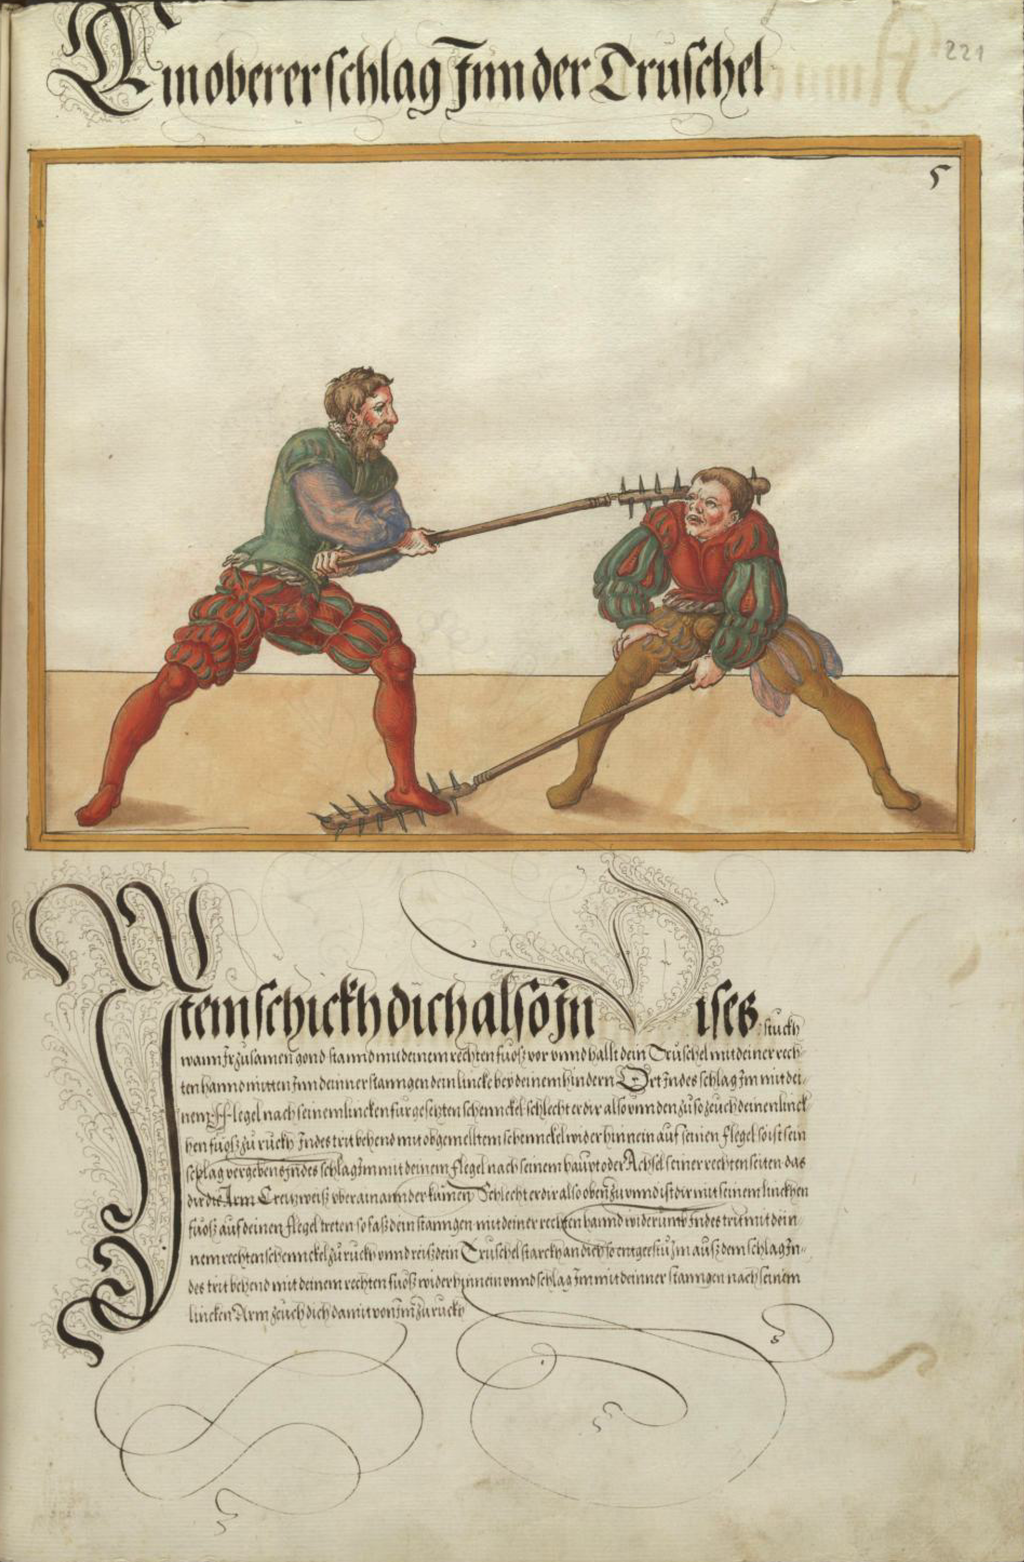 221
Ain oberer schlag Jnn der Truschel
5
Jtem schickh dich also Jn Dises stuckh
wann Jr zusamen gond stannd mit deinem rechten fuoß vor vnnd hallt dein Truschel mit deiner rech-
ten hannd mitten Jnn deinner stanngen dein lincke bey deinem hindern Ort Jndes schlag Jm mit dei-
nem Pflegel nach seinem lincken furgesetzten schennckel schlecht er dir also vnnden zu so zeuch deinen linck
hen fuoß zu ruckh Jndes trit behend mit obgemelltem schennckel wider hinnein auf seinen flegel so ist sein
schlag vergebens Jndes schlag Jm mit deinem flegel nach seinem haupt oder Achsel seiner rechten seiten das
dir die Arm Creutzweiß vber ainannder kumen Schlecht er dir also oben zu vnnd ist dir mit seinem linckhen
fuoß auf deinen flegel treten so faß dein stanngen mit deiner rechten hannd widerumb Jndes trit mit dein-
nem rechten schennckel zu ruckh vnnd reiß dein Truschel starckh an dich so entgest du Jm auß dem schlag Jn-
des trit behend mit deinem rechten fuoß wider hinnein vnnd schlag Jm mit deinner stanngen nach seinem
lincken Arm zeuch dich damit von Jm zu ruckh